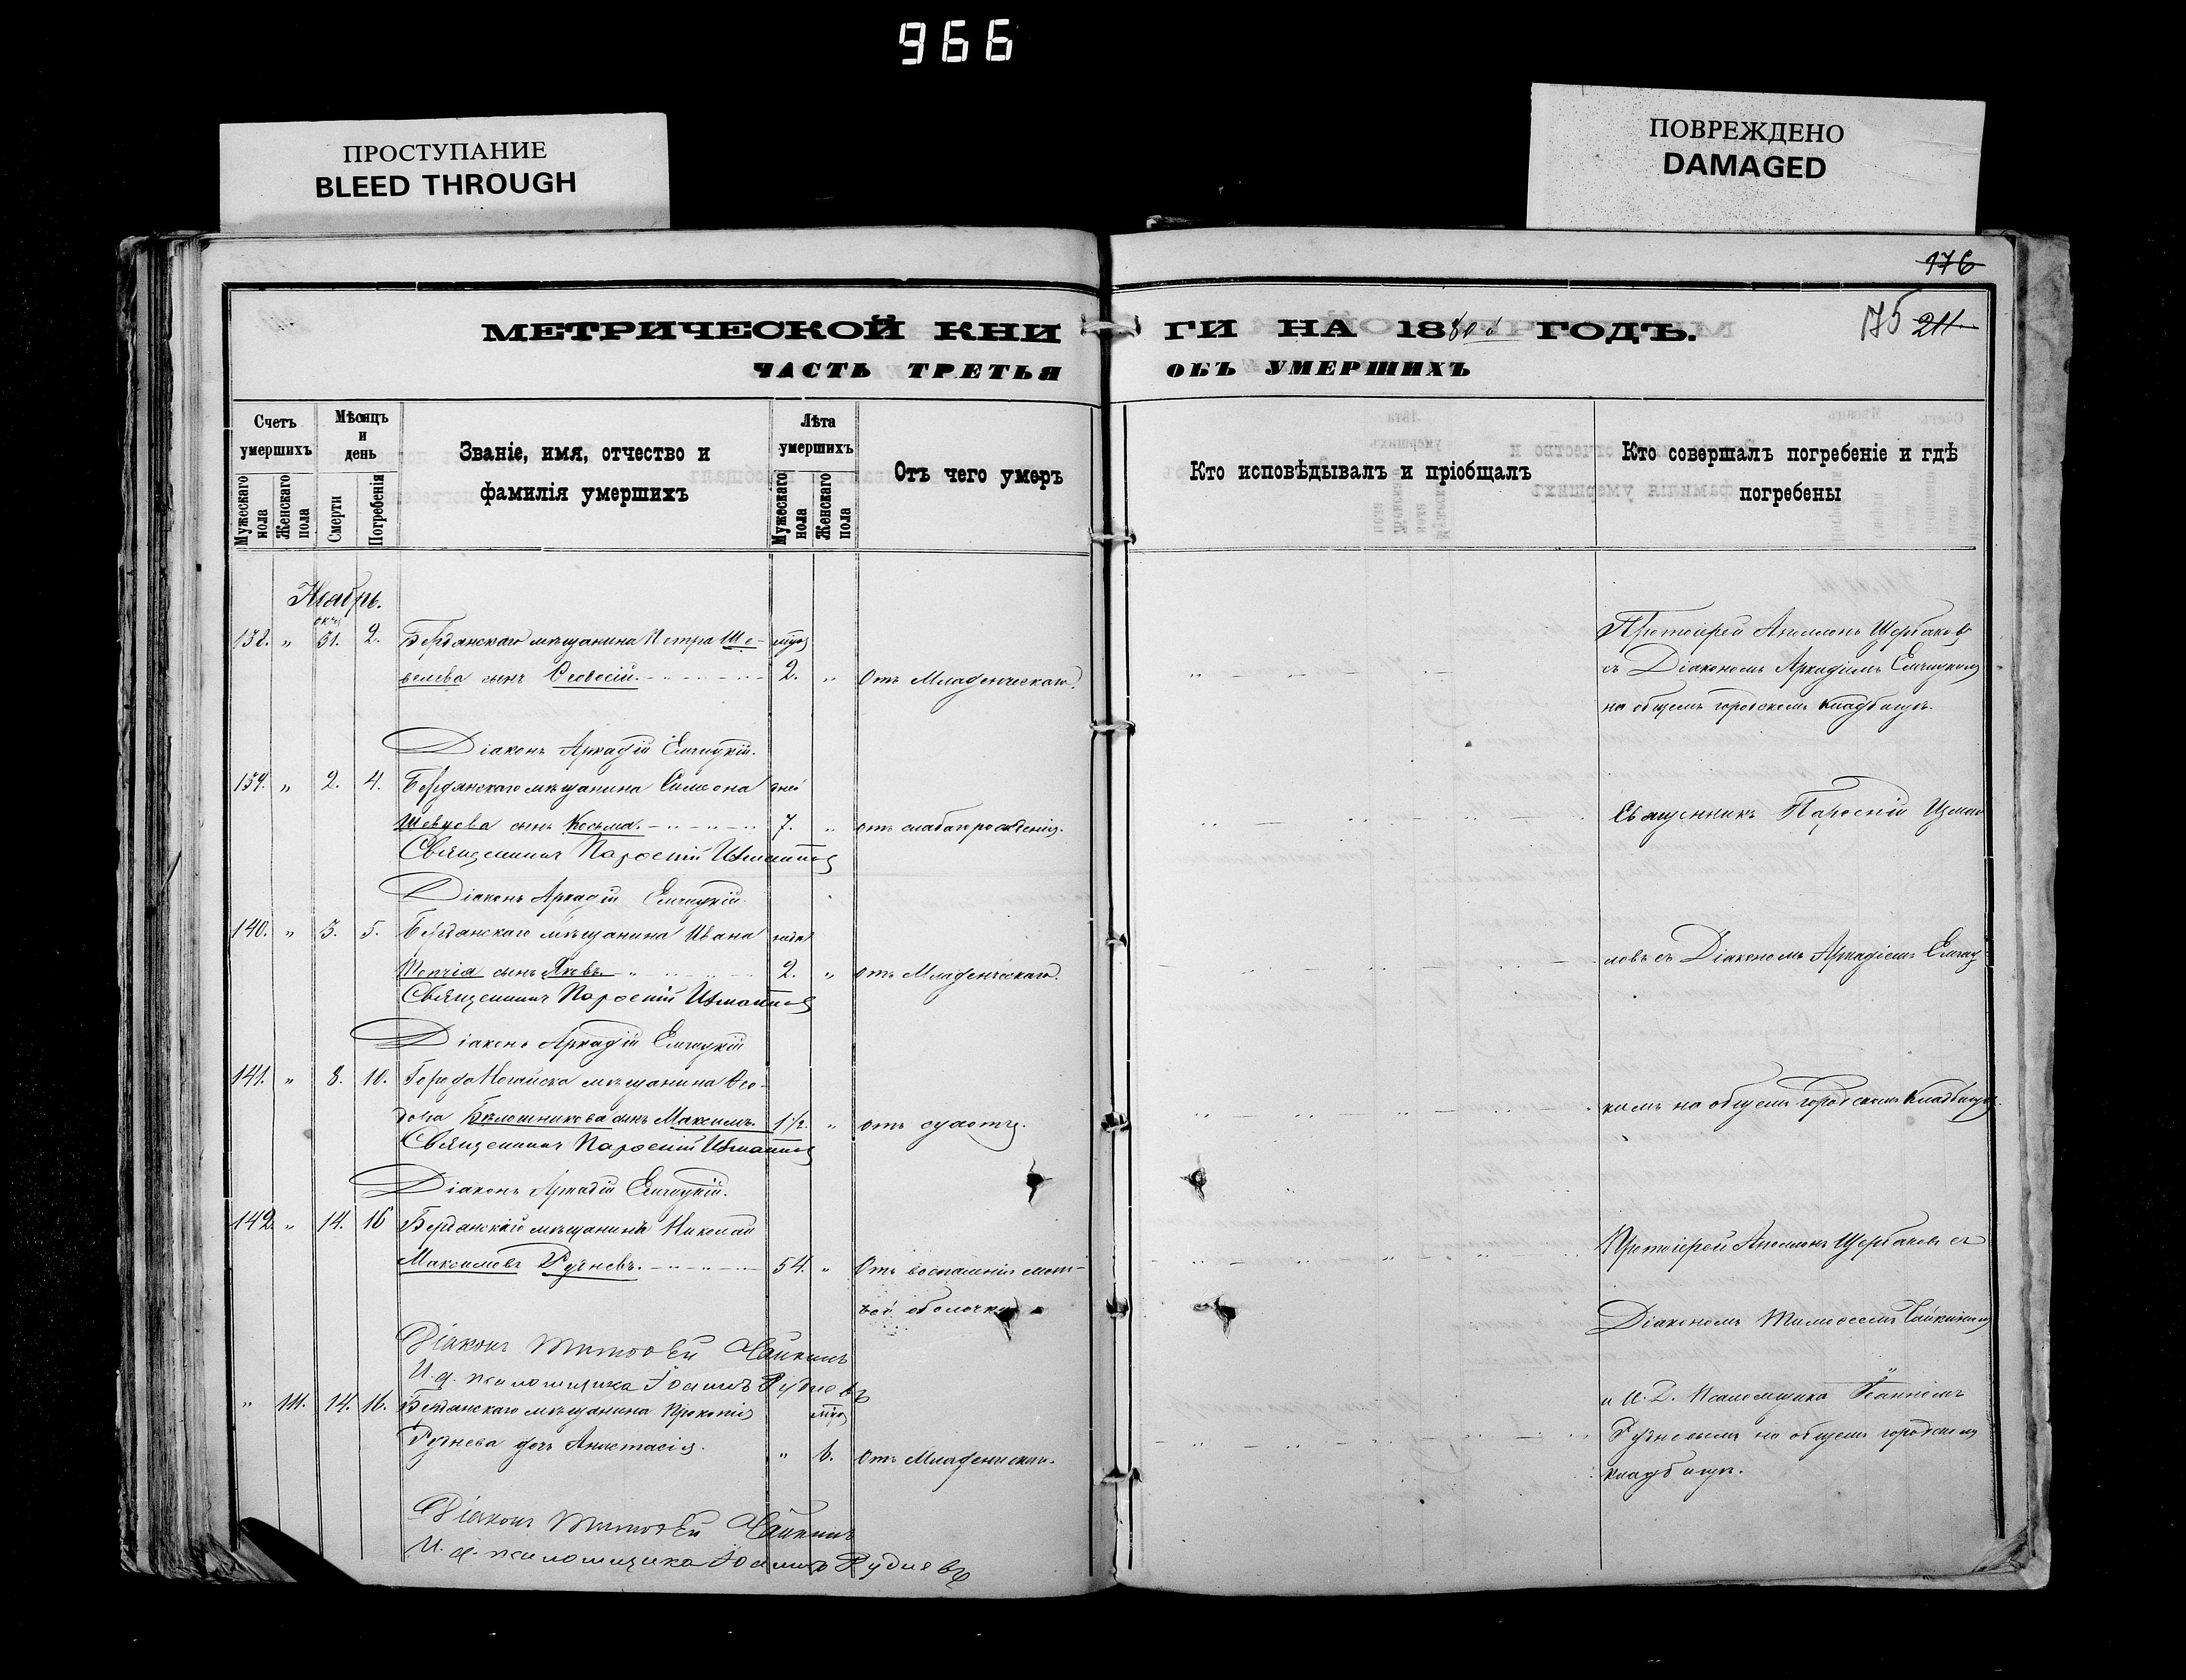 966
ПРОСТУПАНИЕ
BLEED THROUGH
ПОВРЕЖДЕНО
DAMAGED
176
175 211
МЕТРИЧЕСКОЙ КНИ
ГИ НА 1880й ГОДЪ.
ЧАСТЬ ТРЕТЬЯ
ОБЪ УМЕРШИХЪ
Счетъ умершихъ
Мужескаго пола
Женскаго пола
Мѣсяцъ и день
Смерти
Погребенія
Званіе, имя, отчество и фамилія умершихъ
Лѣта умершихъ
Мужескаго пола
Женскаго пола
Отъ чего умеръ
Кто исповѣдывалъ и пріобщалъ
Кто совершалъ погребеніе и гдѣ погребены
Ноябрь.
138. " 31. 2. Бердянскаго мѣщанина Петра Ше-
велева сынъ Ѳеодосій. 2. " Отъ Младенческаго.
Протоіерей Аполлонъ Щербаковъ
съ Діакономъ Аркадіемъ
на общемъ городскомъ кладбищѣ.
Діаконъ Аркадій
139. " 2. 4. Бердянскаго мѣщанина Симеона дней
Шевцова сынъ Косьма. 7. " отъ слабаго рожденія.
Священникъ Парѳеній Измаи
Священникъ Парѳеній Измаиловъ
Діаконъ Аркадій
140. " 3. 5. Бердянскаго мѣщанина Ивана
сынъ Яковъ. 2. " отъ Младенческаго.
ловъ съ Діакономъ Аркадіемъ
Священникъ Парѳеній Измаиловъ
Діаконъ Аркадій
141. " 8. 10. Города Ногайска мѣщанина Ѳео-
дора сынъ Максимъ. 1½. " отъ сухотъ.
кимъ на общемъ городскомъ кладбищѣ.
Священникъ Парѳеній Измаиловъ
Діаконъ Аркадій
142. " 14. 16 Бердянскій мѣщанинъ Николай
Максимовъ Рудневъ. 54. " Отъ воспаленія
оболочки
Протоіерей Аполлонъ Щербаковъ съ
Діакономъ Тимоѳеемъ Чайкинымъ
Діаконъ Тимоѳей Чайкинъ
И. д. псаломщика Іоаннъ Рудневъ
" 111. 14. 16. Бердянскаго мѣщанина Прокопія
Руднева дочь Анастасія. " 6. Отъ Младенческаго.
и И. Д. Псаломщика Іоанномъ
Рудневымъ на общемъ городскомъ
кладбищѣ.
Діаконъ Тимоѳей Чайкинъ
И. д. псаломщика Іоаннъ Рудневъ